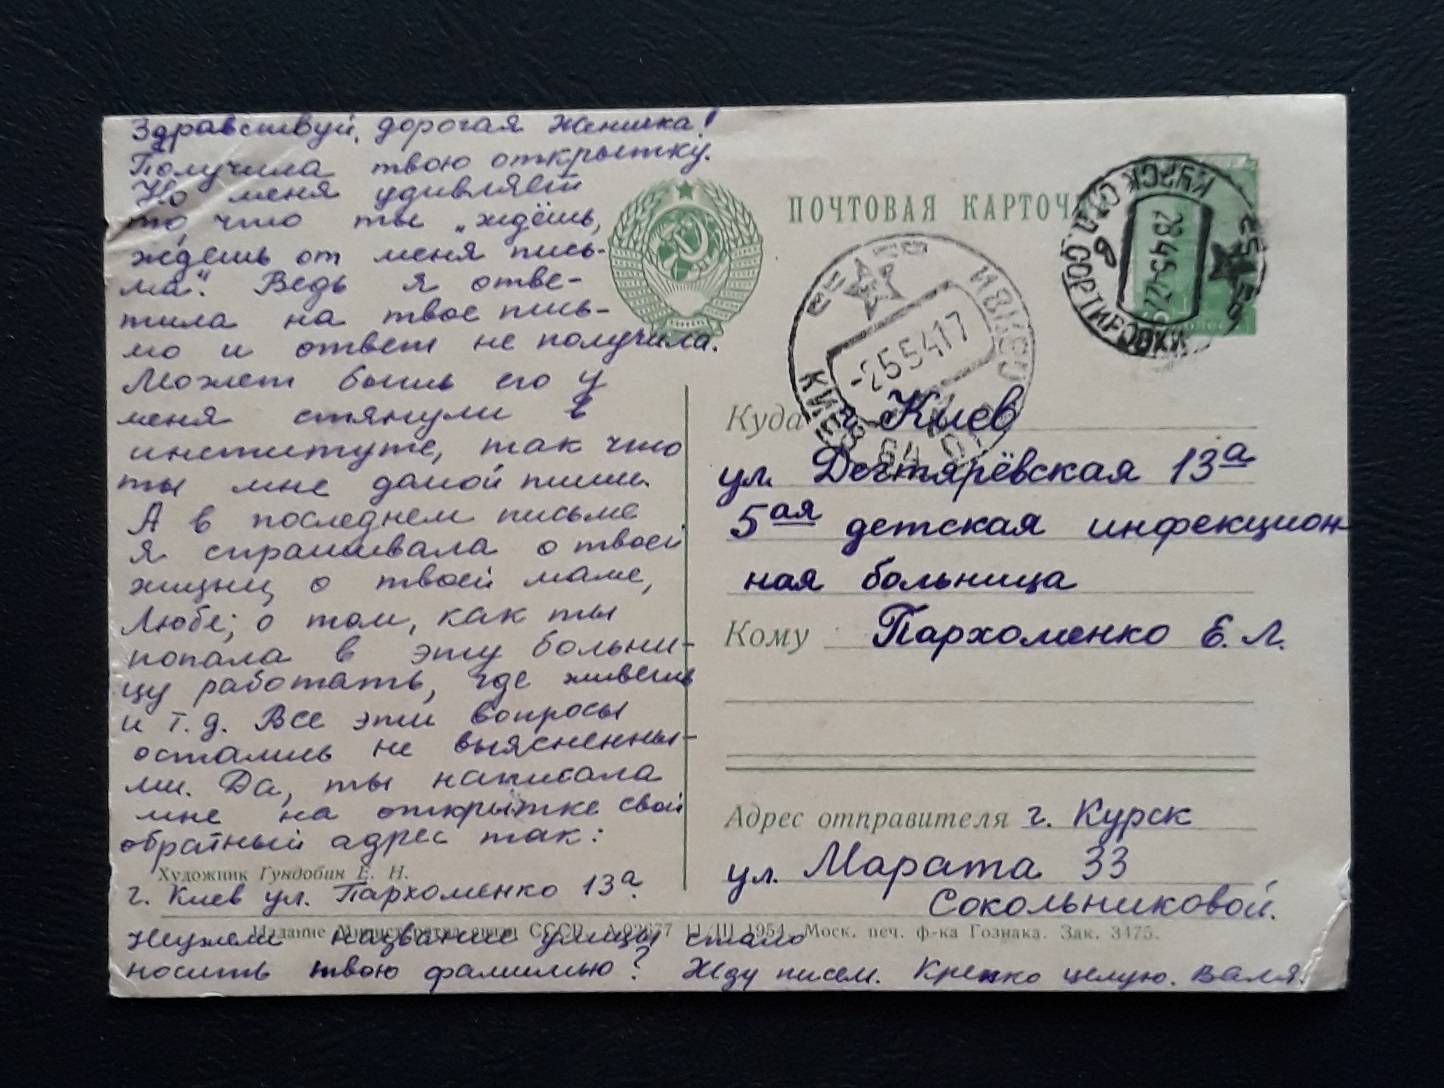 Здравствуй, дорогая Женичка!
Получила твою открытку.
Но меня удивляет
то, что ты „ждёшь,
ждешь от меня пись-
ма“. Ведь я отве-
тила на твое пись-
мо и ответ не получила.
Может быть его у
меня стянули в
институте, так что
ты мне домой пиши.
А в последнем письме
я спрашивала о твоей
жизни, о твоей маме,
Любе; о том, как ты
попала в эту больни-
цу работать, где живешь
и т.д. Все эти вопросы
остались не выясненны-
ми. Да, ты написала
мне на открытке свой
обратный адрес так:
Художник Гундобин Е. Н.
г. Киев ул. Пархоменко 13а
Неужели название улицы стало
носить твою фамилию? Жду писем. Крепко целую. Валя.
Издание Министерства связи СССР. А-02677 11/III 1954. Моск. печ. ф-ка Гознака. Зак. 3175.
ПОЧТОВАЯ КАРТОЧ
КУРСК
СОРТИРОВКИ
КИЕВ
-255417
Куда г. Киев
ул. Дегтярёвская 13а
5ая детская инфекцион
ная больница
Кому Пархоменко Е. Л.
Адрес отправителя г. Курск
ул. Марата 33
Сокольниковой.